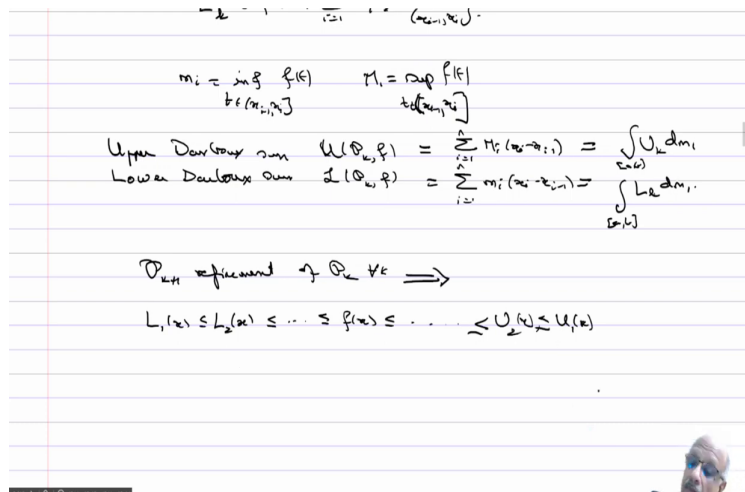 m_i = inf f(t) M_i = sup f(t)
t∈(x_{i-1}, x_i] t∈[x_{i-1}, x_i]
Upper Darboux sum U(P_k, f) = Σ_{i=1}^{n} M_i (x_i - x_{i-1}) = ∫_{[a,b]} U_k dm_1
Lower Darboux sum L(P_k, f) = Σ_{i=1}^{n} m_i (x_i - x_{i-1}) = ∫_{[a,b]} L_k dm_1.
P_{k+1} refinement of P_k ∀k ⟹
L_1(x) ≤ L_2(x) ≤ ... ≤ f(x) ≤ ..... ≤ U_2(x) ≤ U_1(x)